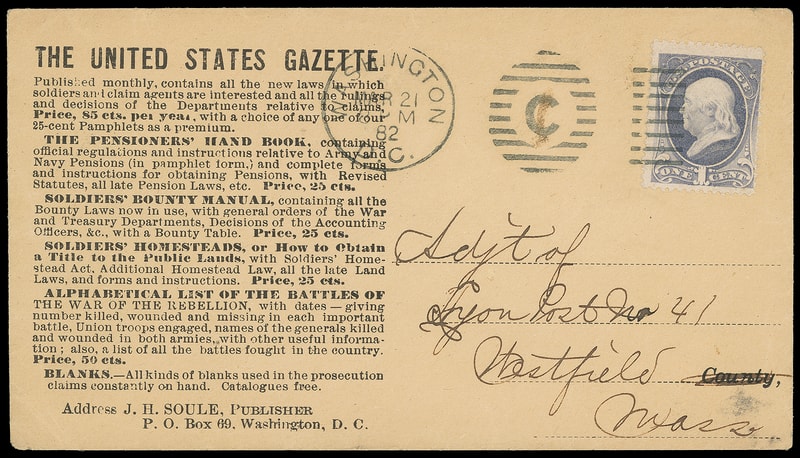 THE UNITED STATES GAZETTE.
Published monthly, contains all the new laws in which
soldiers and claim agents are interested and all the rulings
and decisions of the Departments relative to claims,
Price, 85 cts. per year, with a choice of any one of our
25-cent Pamphlets as a premium.
THE PENSIONERS' HAND BOOK, containing
official regulations and instructions relative to Army and
Navy Pensions (in pamphlet form,) and complete forms
and instructions for obtaining Pensions, with Revised
Statutes, all late Pension Laws, etc. Price, 25 cts.
SOLDIERS' BOUNTY MANUAL, containing all the
Bounty Laws now in use, with general orders of the War
and Treasury Departments, Decisions of the Accounting
Officers, &c., with a Bounty Table. Price, 25 cts.
SOLDIERS' HOMESTEADS, or How to Obtain
a Title to the Public Lands, with Soldiers' Home-
stead Act, Additional Homestead Law, all the late Land
Laws, and forms and instructions. Price, 25 cts.
ALPHABETICAL LIST OF THE BATTLES OF
THE WAR OF THE REBELLION, with dates — giving
number killed, wounded and missing in each important
battle, Union troops engaged, names of the generals killed
and wounded in both armies, with other useful informa-
tion; also, a list of all the battles fought in the country.
Price, 50 cts.
BLANKS.—All kinds of blanks used in the prosecution
claims constantly on hand. Catalogues free.
Address J. H. SOULE, PUBLISHER
P. O. Box 69, Washington, D. C.
WASHINGTON
MAR 21
M
82
D.C.
C
U.S. POSTAGE
ONE CENT
Adj't of
Lyon Post No 41
Westfield County,
Mass